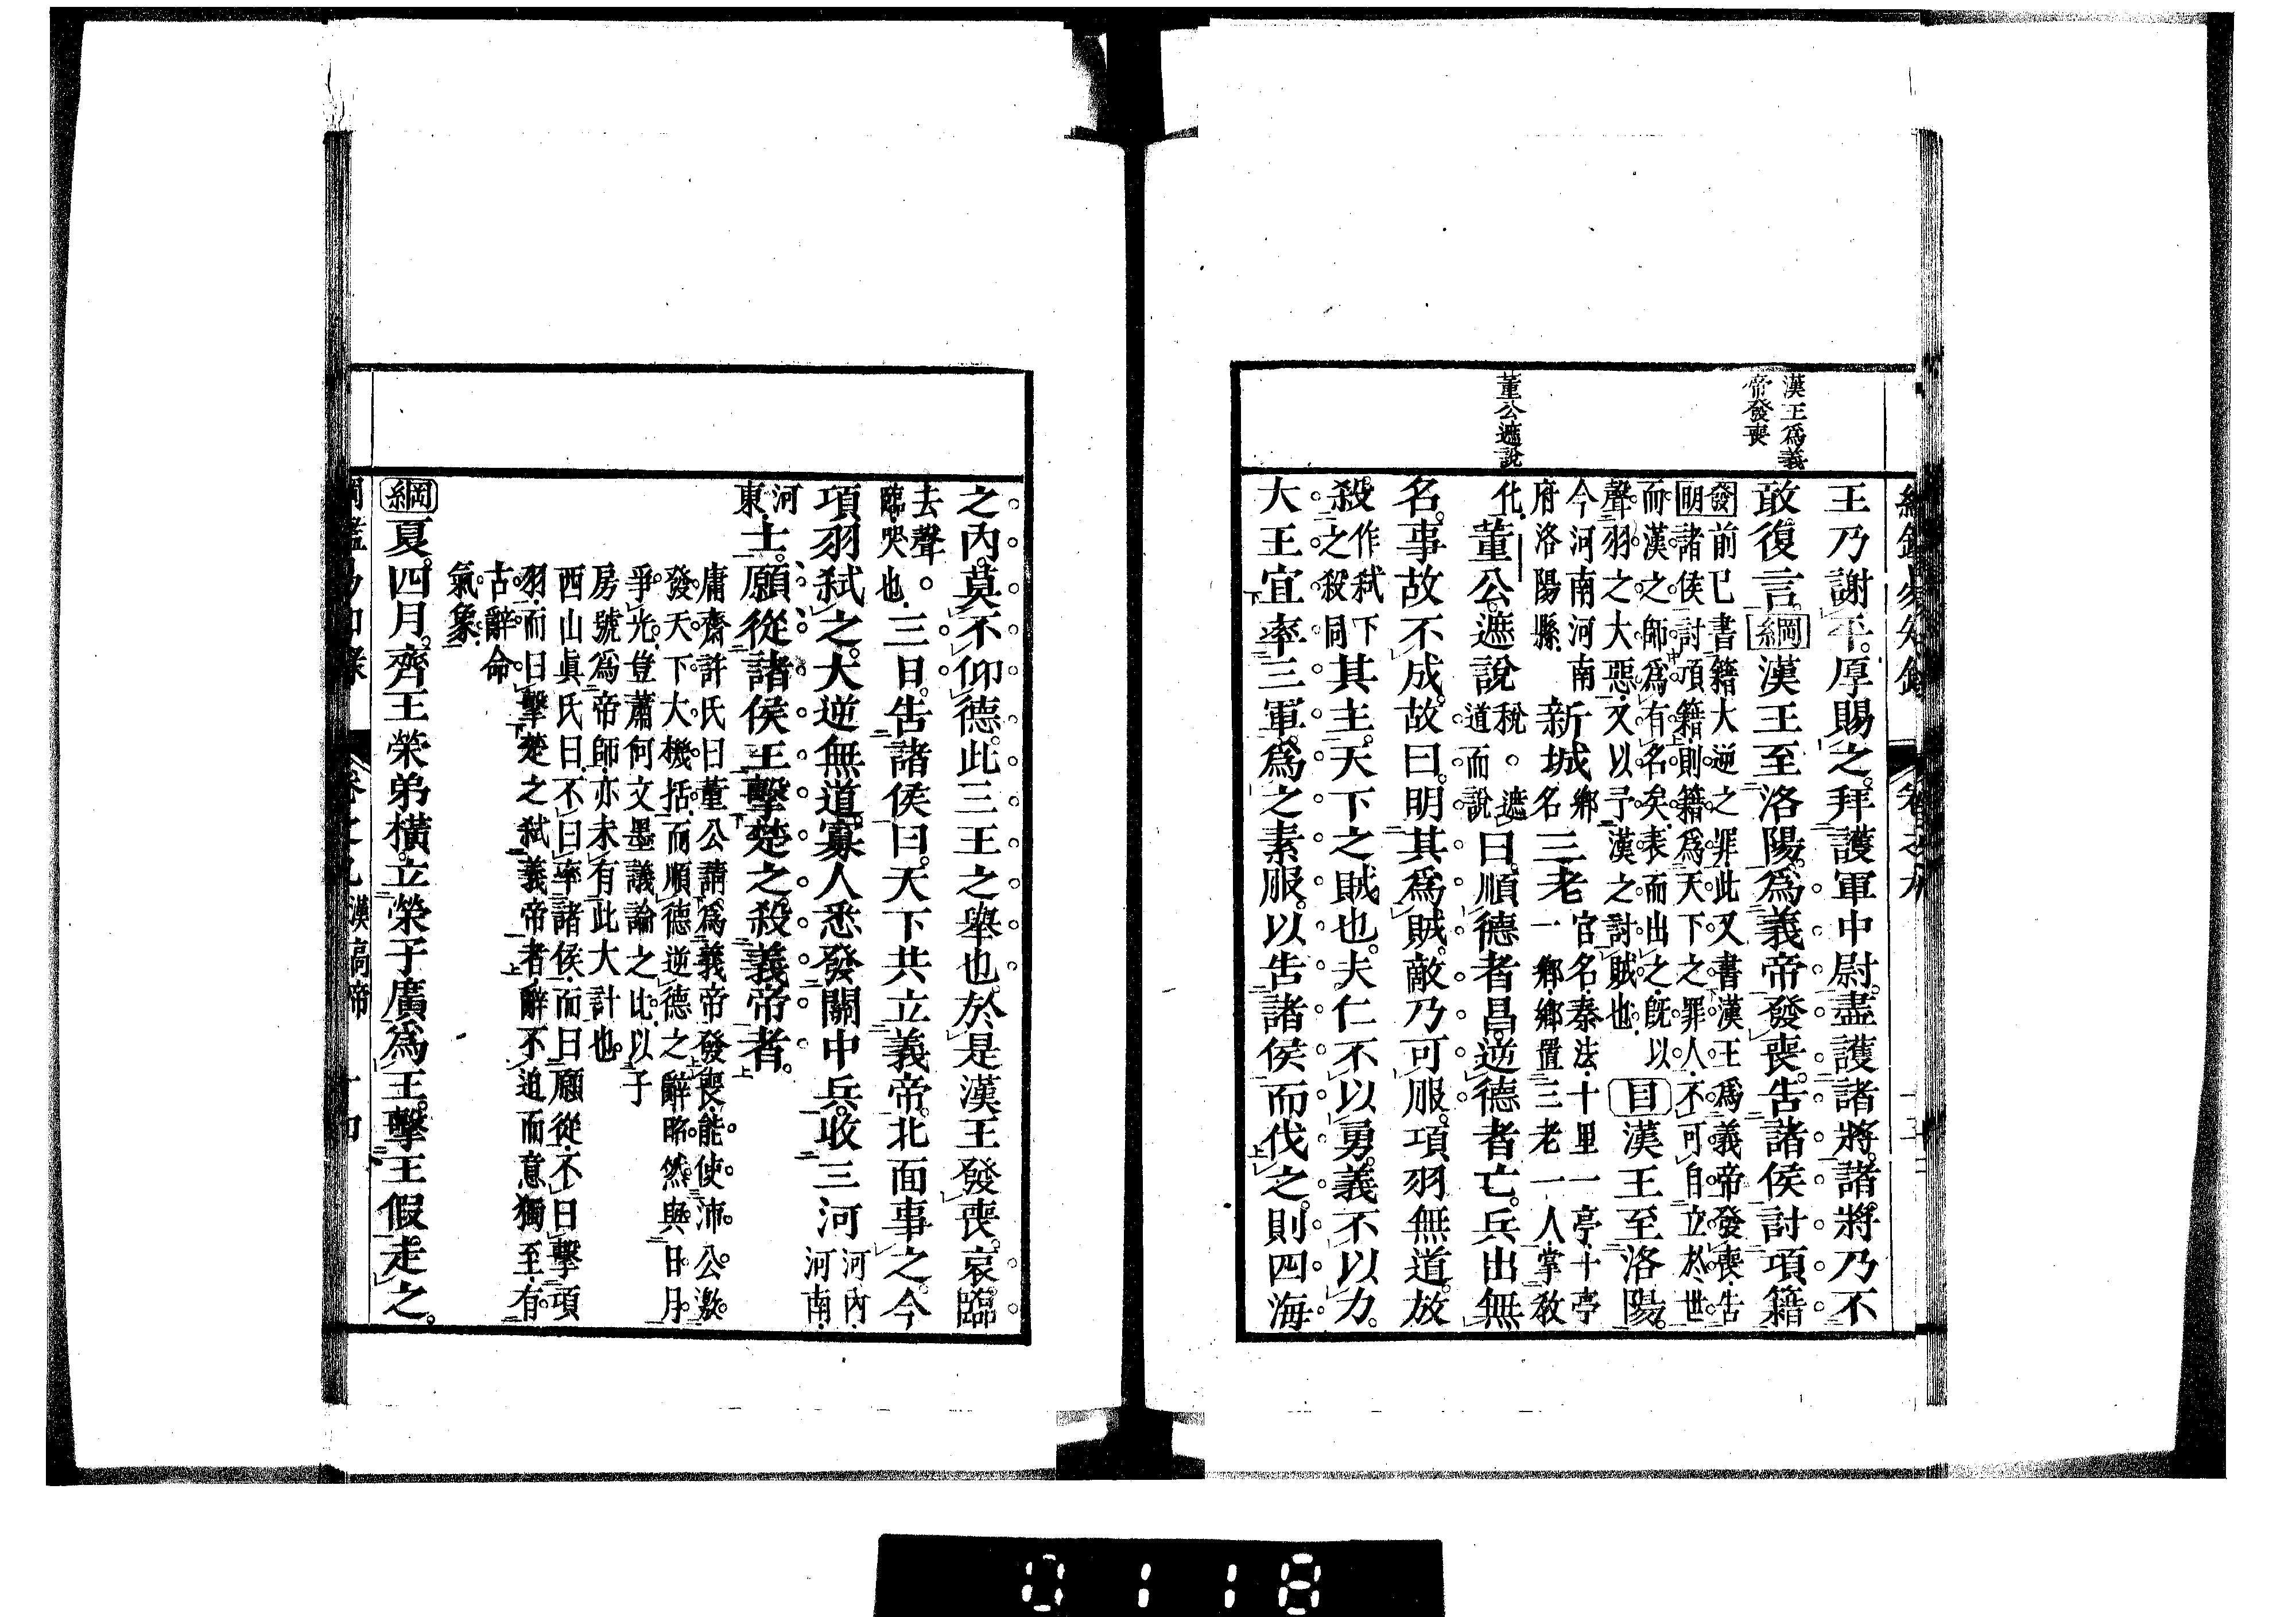 漢王爲義
帝發喪
董公遮說
王乃謝平厚賜之拜護軍中尉盡護諸將諸將乃不
敢復言綱漢王至洛陽爲義帝發喪告諸侯討項籍
發前已書籍大逆之罪此又書漢王爲義帝發喪告
明諸侯討項籍則籍爲天下之罪人不可自立於世
而漢之師爲有名矣表而出之既以
聲羽之大惡又以予漢之討賊也
目漢王至洛陽
今河南河南
府洛陽縣
新城
鄉
名
三老
官名秦法十里一亭十亭
一鄉鄉置三老一人掌敎
化
董公遮說
稅。遮
道而說
曰順德者昌逆德者亡兵出無
名事故不成故曰明其爲賊敵乃可服項羽無道放
殺
作弑下
之殺同
其主天下之賊也夫仁不以勇義不以力
大王宜率三軍爲之素服以告諸侯而伐之則四海
之內莫不仰德此三王之舉也於是漢王發喪哀臨
去聲。
臨哭也
三日告諸侯曰天下共立義帝北面事之今
項羽弑之大逆無道寡人悉發關中兵收三河
河內
河南
河
東
士願從諸侯王擊楚之殺義帝者
庸齋許氏曰董公請爲義帝發喪能使沛公激
發天下大機括而順德逆德之辭昭然與日月
爭光豈蕭何文墨議論之比以子
房號爲帝師亦未有此大計也
西山眞氏曰不曰率諸侯而曰願從不曰擊項
羽而曰擊楚之弑義帝者辭不迫而意獨至有
古辭命
氣象
綱夏四月齊王榮弟橫立榮子廣爲王擊王假走之
漢高帝